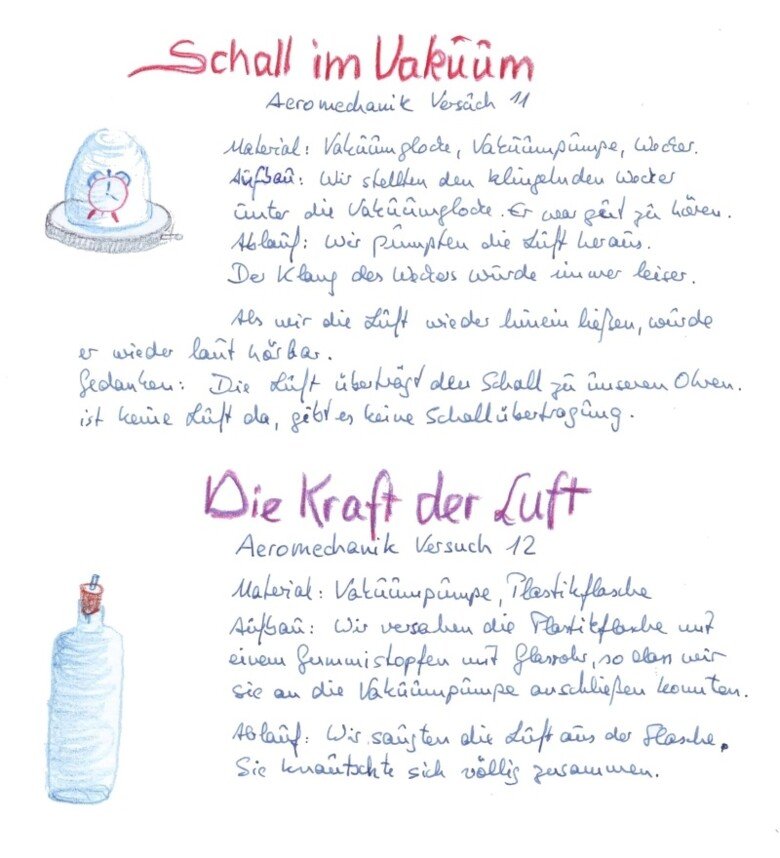 Schall im Vakuum
Aeromechanik Versuch 11
Material: Vakuumglocke, Vakuumpumpe, Wecker.
Aufbau: Wir stellten den klingelnden Wecker
unter die Vakuumglocke. Er war gut zu hören.
Ablauf: Wir pumpten die Luft heraus.
Der Klang des Weckers wurde immer leiser.
Als wir die Luft wieder hinein ließen, wurde
er wieder laut hörbar.
Gedanken: Die Luft überträgt den Schall zu unseren Ohren.
ist keine Luft da, gibt es keine Schallübertragung.
Die Kraft der Luft
Aeromechanik Versuch 12
Material: Vakuumpumpe, Plastikflasche
Aufbau: Wir versahen die Plastikflasche mit
einem Gummistopfen mit Glasrohr, so dass wir
sie an die Vakuumpumpe anschließen konnten.
Ablauf: Wir saugten die Luft aus der Flasche.
Sie knautschte sich völlig zusammen.